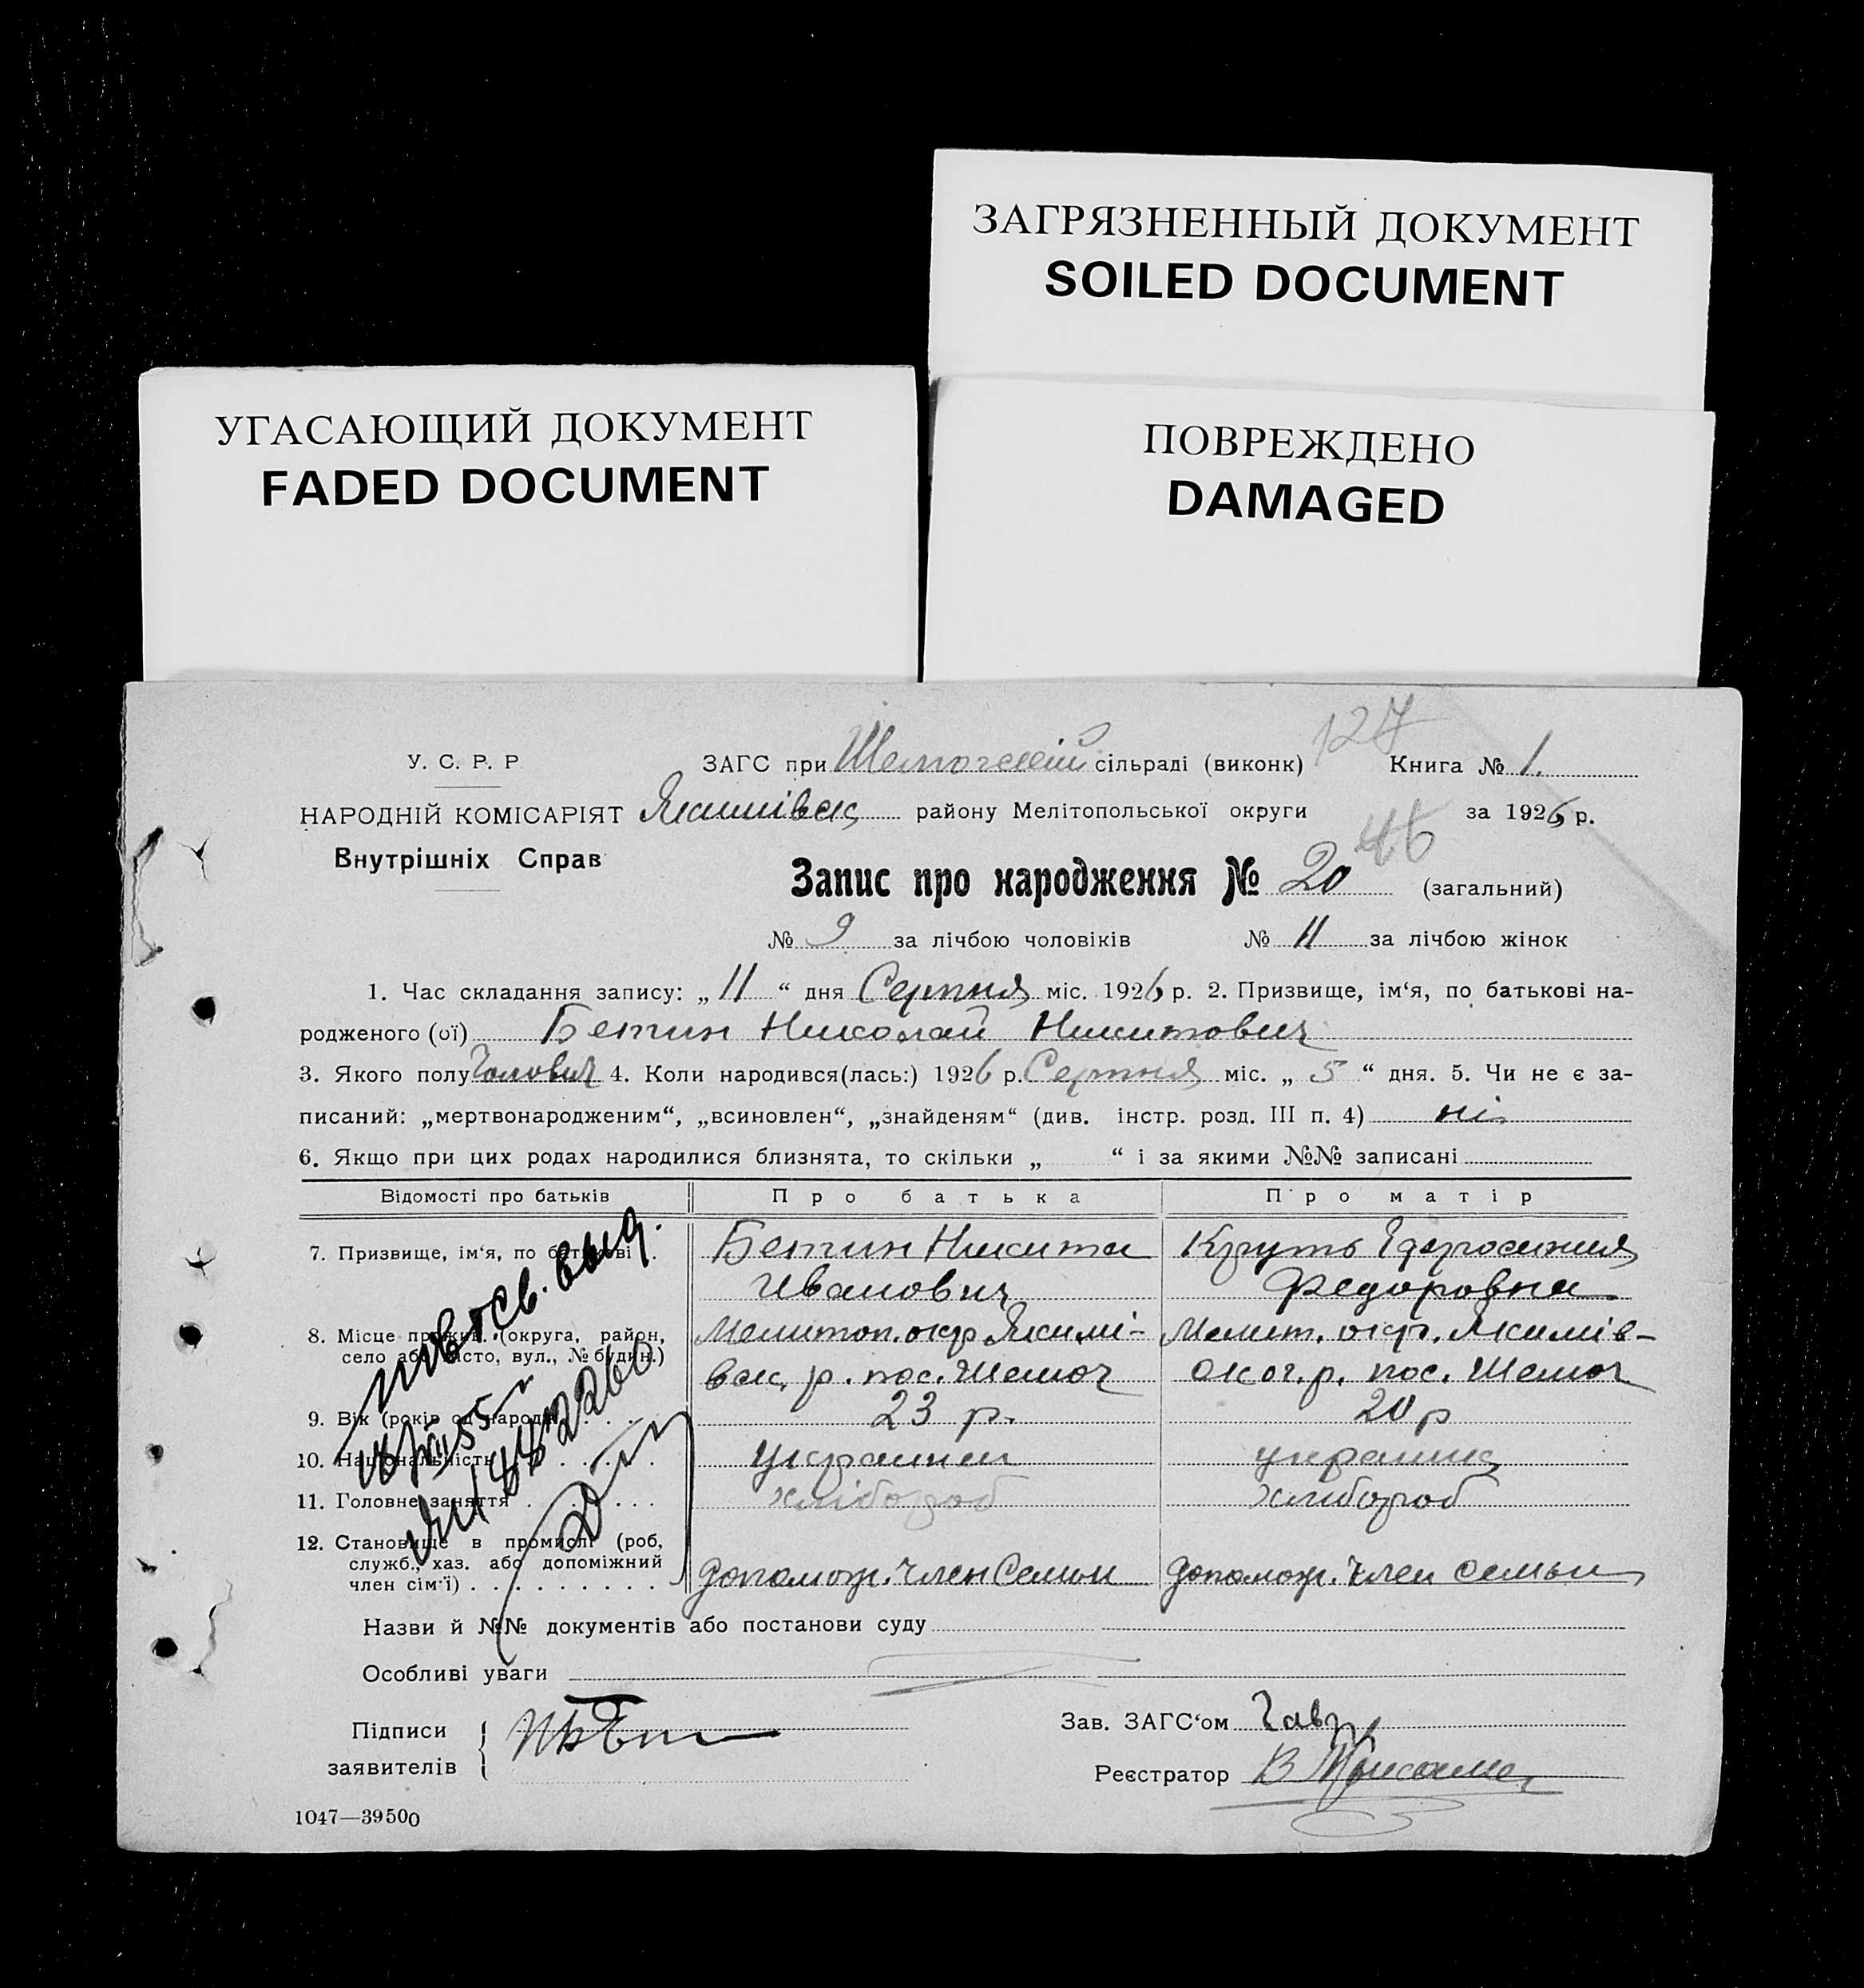 ЗАГРЯЗНЕННЫЙ ДОКУМЕНТ
SOILED DOCUMENT
УГАСАЮЩИЙ ДОКУМЕНТ
FADED DOCUMENT
ПОВРЕЖДЕНО
DAMAGED
127
У. С. Р. Р ЗАГС при сільраді (виконк) Книга № 1.
НАРОДНІЙ КОМІСАРІЯТ району Мелітопольської округи за 1926 р.
Внутрішніх Справ
46
Запис про народження № 20 (загальний)
№ 9 за лічбою чоловіків № 11 за лічбою жінок
1. Час складання запису: „ 11 “ дня Серпня міс. 1926 р. 2. Призвище, ім‘я, по батькові на-
родженого (ої) Бетин Николай Никитович
3. Якого полу Чолович 4. Коли народився(лась:) 1926 р. Серпня міс. „ 5 “ дня. 5. Чи не є за-
писаний: „мертвонародженим“, „всиновлен“, „знайденям“ (див. інстр. розд. III п. 4) ні
6. Якщо при цих родах народилися близнята, то скільки „ “ і за якими №№ записані
Відомості про батьків Про батька Про матір
7. Призвище, ім‘я, по батькові Бетин Никита Круть
Иванович Федоровна
8. Місце прожив. (округа, район, Мелитоп. окр. Якимі- Мелит. окр. Якимів-
село або місто, вул., № будин.) вск. р. пос. Шемот ског. р. пос. Шемот
9. Вік (років од народж. 23 р. 20 р
10. Національність украинец украинц
11. Головне заняття хлібороб хлибороб
12. Становище в промислі (роб,
служб., хаз. або допоміжний
член сім‘ї) допомож. член Семьи допомож. член семьи
Назви й №№ документів або постанови суду
Особливі уваги
Підписи Зав. ЗАГС‘ом
заявителів Реєстратор
1047—39500